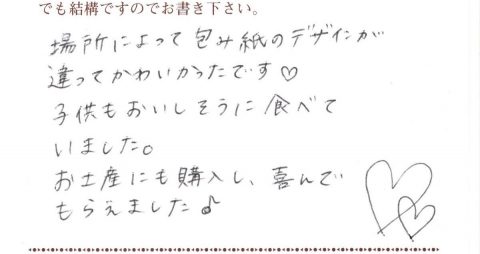 でも結構ですのでお書き下さい。
場所によって包み紙のデザインが
違ってかわいかったです♡
子供もおいしそうに食べて
いました。
お土産にも購入し、喜んで
もらえました♪